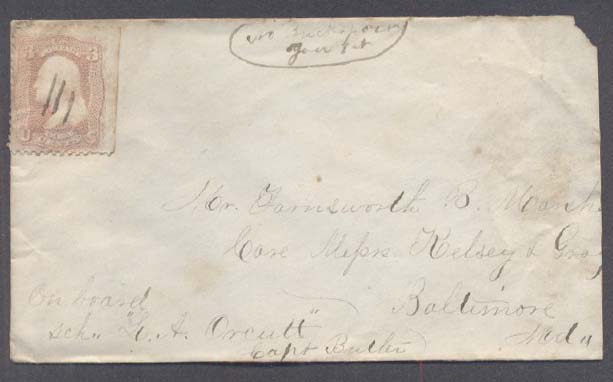 3 3
Mr. Farnsworth B. Marsh
Care Messrs Kelsey & Gray
Baltimore
Md
On board
sch. "L. A. Orcutt"
Capt Butler